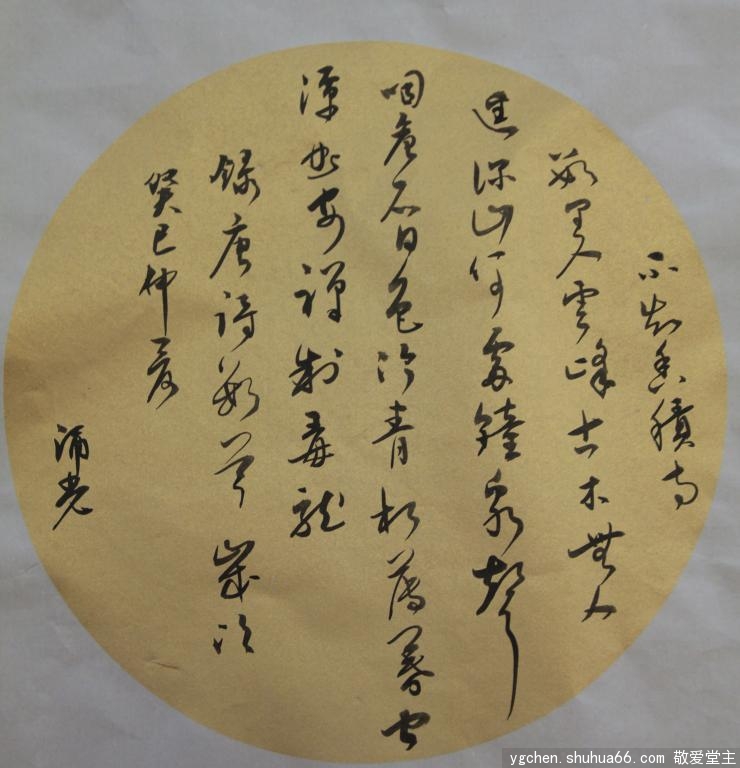 不知香積寺
數里入雲峰古木無人
逕深山何處鐘泉聲
咽危石日色冷青松薄暮空
潭曲安禪制毒龍
錄唐詩數首歲次
癸巳仲夏
ygchen.shuhua66.com 敬爱堂主